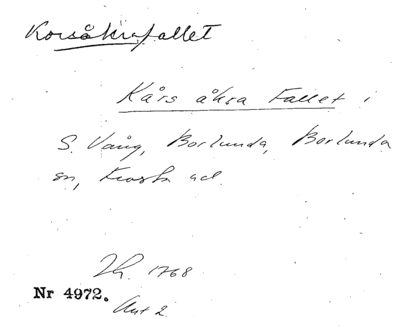 Korsåkrafallet
Kårs åkra Fallet i
S. Vång, Borlunda, Borlunda
sn, Frosta hd.
Lh. 1768
Nr 4972.
Akt 2.